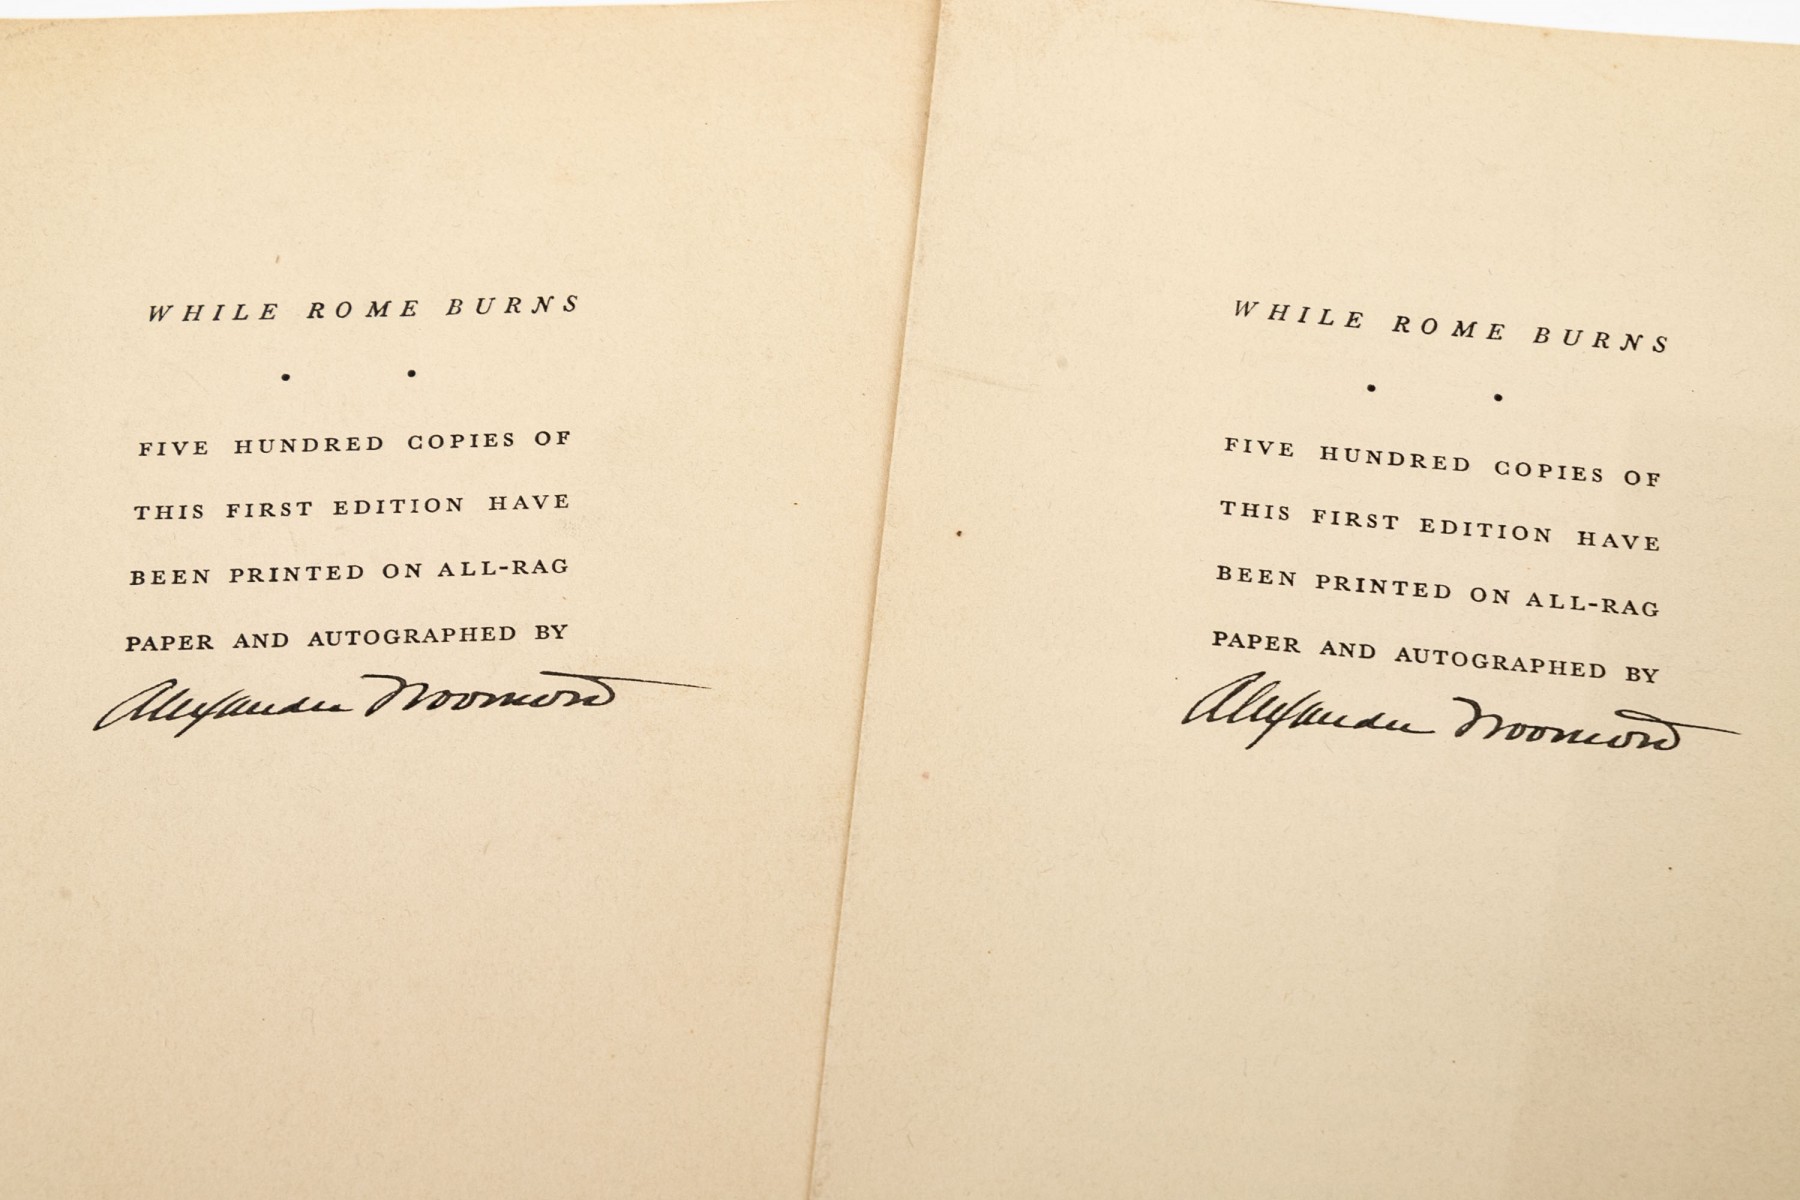 WHILE ROME BURNS
FIVE HUNDRED COPIES OF
THIS FIRST EDITION HAVE
BEEN PRINTED ON ALL-RAG
PAPER AND AUTOGRAPHED BY
Alexander Woollcott
WHILE ROME BURNS
FIVE HUNDRED COPIES OF
THIS FIRST EDITION HAVE
BEEN PRINTED ON ALL-RAG
PAPER AND AUTOGRAPHED BY
Alexander Woollcott